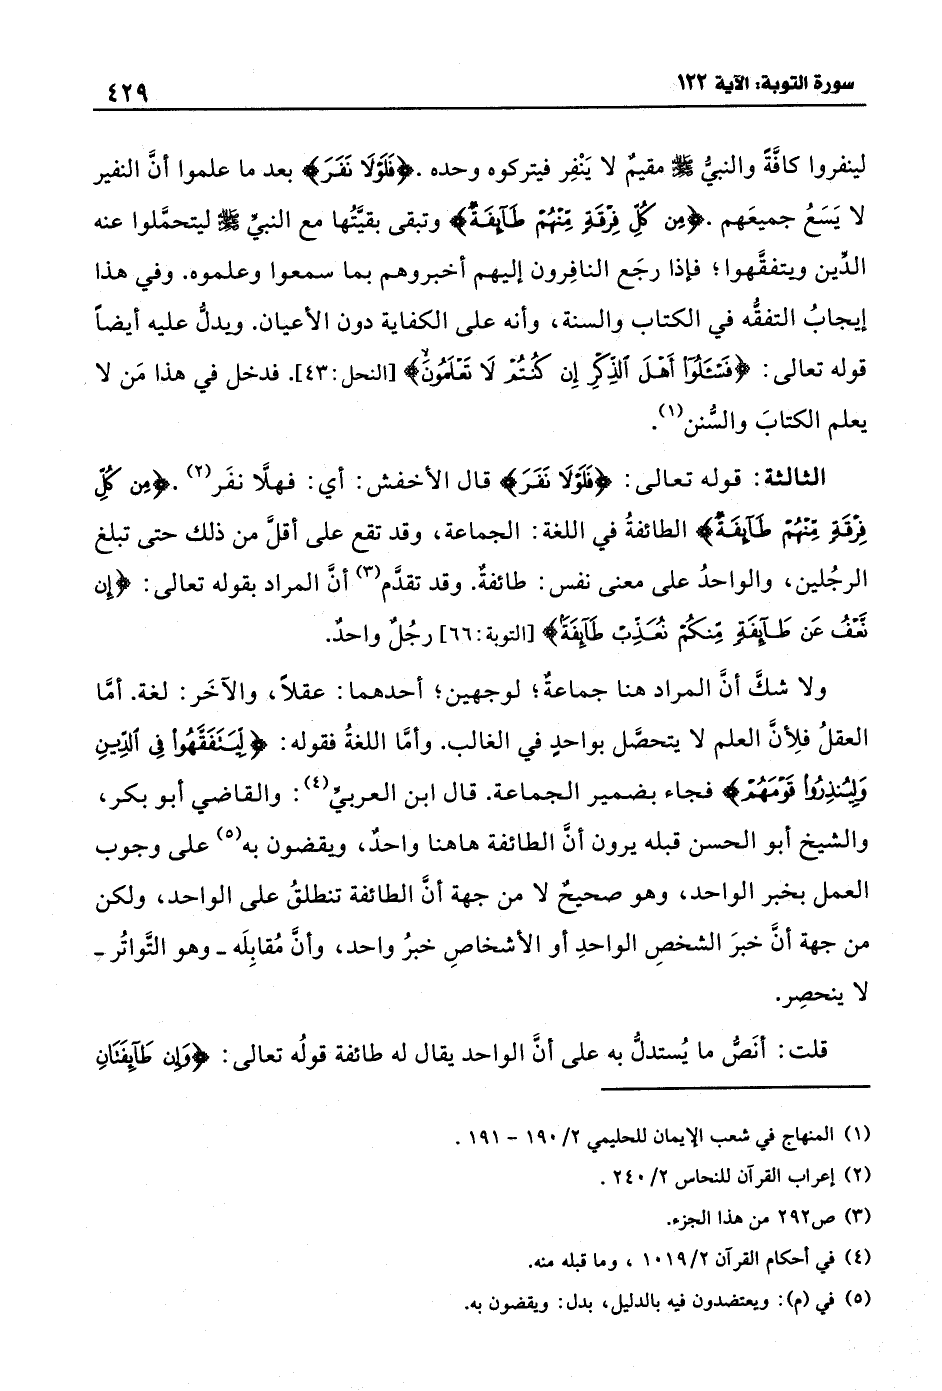 سورة التوبة: الآية ١٢٢
٤٢٩
لينفروا كافَّةً والنبيُّ ﷺ مقيمٌ لا يَنْفِر فيتركوه وحده. ﴿فَلَوْلَا نَفَرَ﴾ بعد ما علموا أنَّ النفير
لا يَسَعُ جميعَهم. ﴿مِن كُلِّ فِرْقَةٍ مِّنْهُمْ طَآئِفَةٌ﴾ وتبقى بقيَّتُها مع النبيِّ ﷺ ليتحمَّلوا عنه
الدِّين ويتفقَّهوا؛ فإذا رجَع النافِرون إليهم أخبروهم بما سمعوا وعلموه. وفي هذا
إيجابُ التفقُّه في الكتاب والسنة، وأنه على الكفاية دون الأعيان. ويدلُّ عليه أيضاً
قوله تعالى: ﴿فَسْـَٔلُوٓا۟ أَهْلَ ٱلذِّكْرِ إِن كُنتُمْ لَا تَعْلَمُونَ﴾ [النحل:٤٣]. فدخل في هذا مَن لا
يعلم الكتابَ والسُّنن(١).
الثالثة: قوله تعالى: ﴿فَلَوْلَا نَفَرَ﴾ قال الأخفش: أي: فهلَّا نفَر(٢). ﴿مِن كُلِّ
فِرْقَةٍ مِّنْهُمْ طَآئِفَةٌ﴾ الطائفةُ في اللغة: الجماعة، وقد تقع على أقلَّ من ذلك حتى تبلغ
الرجُلين، والواحدُ على معنى نفس: طائفةٌ. وقد تقدَّم(٣) أنَّ المراد بقوله تعالى: ﴿إِن
نَّعْفُ عَن طَآئِفَةٍ مِّنكُمْ نُعَذِّبْ طَآئِفَةً﴾ [التوبة:٦٦] رجُلٌ واحدٌ.
ولا شكَّ أنَّ المراد هنا جماعةٌ؛ لوجهين؛ أحدهما: عقلاً، والآخَر: لغة. أمَّا
العقلُ فلِأنَّ العلم لا يتحصَّل بواحدٍ في الغالب. وأمَّا اللغةُ فقوله: ﴿لِّيَتَفَقَّهُوا۟ فِى ٱلدِّينِ
وَلِيُنذِرُوا۟ قَوْمَهُمْ﴾ فجاء بضمير الجماعة. قال ابن العربيِّ(٤): والقاضي أبو بكر،
والشيخ أبو الحسن قبله يرون أنَّ الطائفة هاهنا واحدٌ، ويقضون به(٥) على وجوب
العمل بخبر الواحد، وهو صحيحٌ لا من جهة أنَّ الطائفة تنطلقُ على الواحد، ولكن
من جهة أنَّ خبرَ الشخصِ الواحدِ أو الأشخاصِ خبرُ واحد، وأنَّ مُقابِلَه ـ وهو التَّواتُر ـ
لا ينحصِر.
قلت: أنَصُّ ما يُستدلُّ به على أنَّ الواحد يقال له طائفة قولُه تعالى: ﴿وَإِن طَآئِفَتَانِ
(١) المنهاج في شعب الإيمان للحليمي ٢/ ١٩٠ - ١٩١ .
(٢) إعراب القرآن للنحاس ٢/ ٢٤٠ .
(٣) ص٢٩٢ من هذا الجزء.
(٤) في أحكام القرآن ٢/ ١٠١٩ ، وما قبله منه.
(٥) في (م): ويعتضدون فيه بالدليل، بدل: ويقضون به.